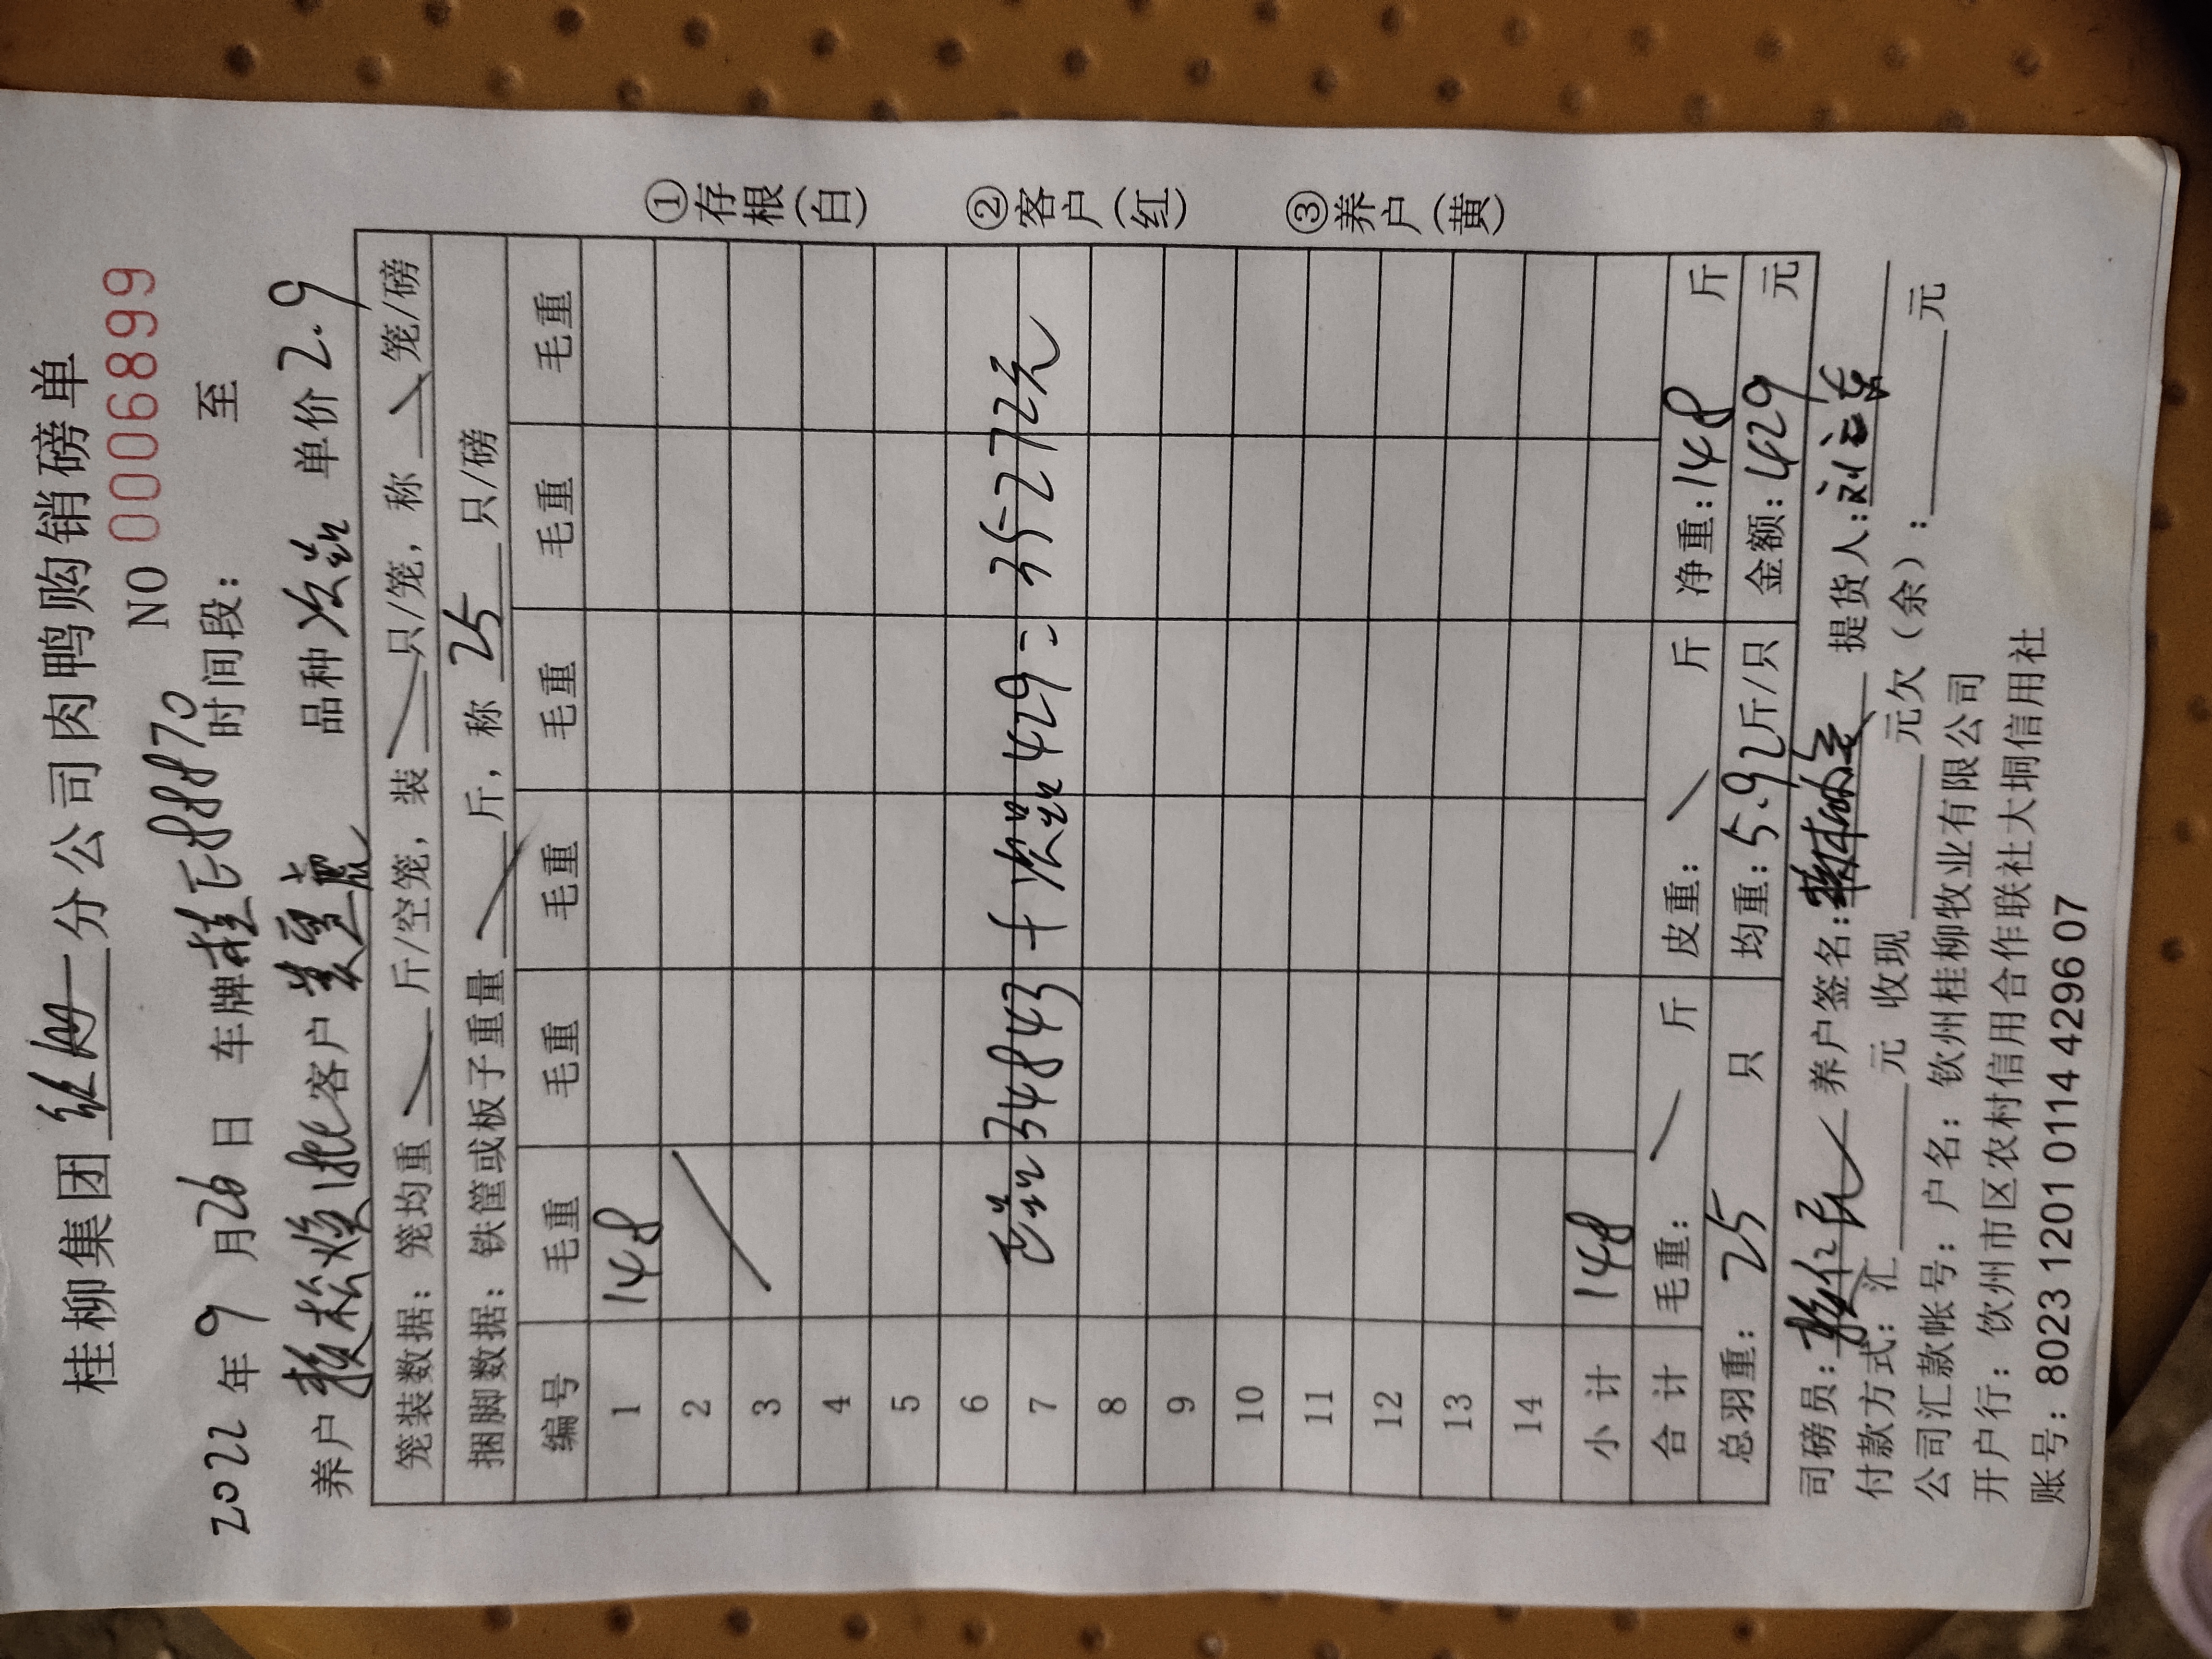 桂柳集团 分公司肉鸭购销磅单
NO 0006899
2022年9月26日 车牌桂E88870 时间段： 至
养户 赖松焕1批 客户 黄 品种 次品 单价 2.9
笼装数据：笼均重 斤/空笼，装 只/笼，称 笼/磅
捆脚数据：铁筐或板子重量 斤，称 25 只/磅
编号 毛重 毛重 毛重 毛重 毛重 毛重
1 148
2
3
4
5
6
7 34843 + 次品 429 = 35272元
8
9
10
11
12
13
14
小计 148
合计 毛重： 斤 皮重： 斤 净重：148 斤
总羽重：25 只 均重：5.92斤/只 金额：429 元
司磅员： 养户签名： 提货人：刘
付款方式：汇 元 收现 元欠（余）： 元
公司汇款帐号：户名：钦州桂柳牧业有限公司
开户行：钦州市区农村信用合作联社大垌信用社
账号：8023 1201 0114 4296 07
①存根（白）
②客户（红）
③养户（黄）